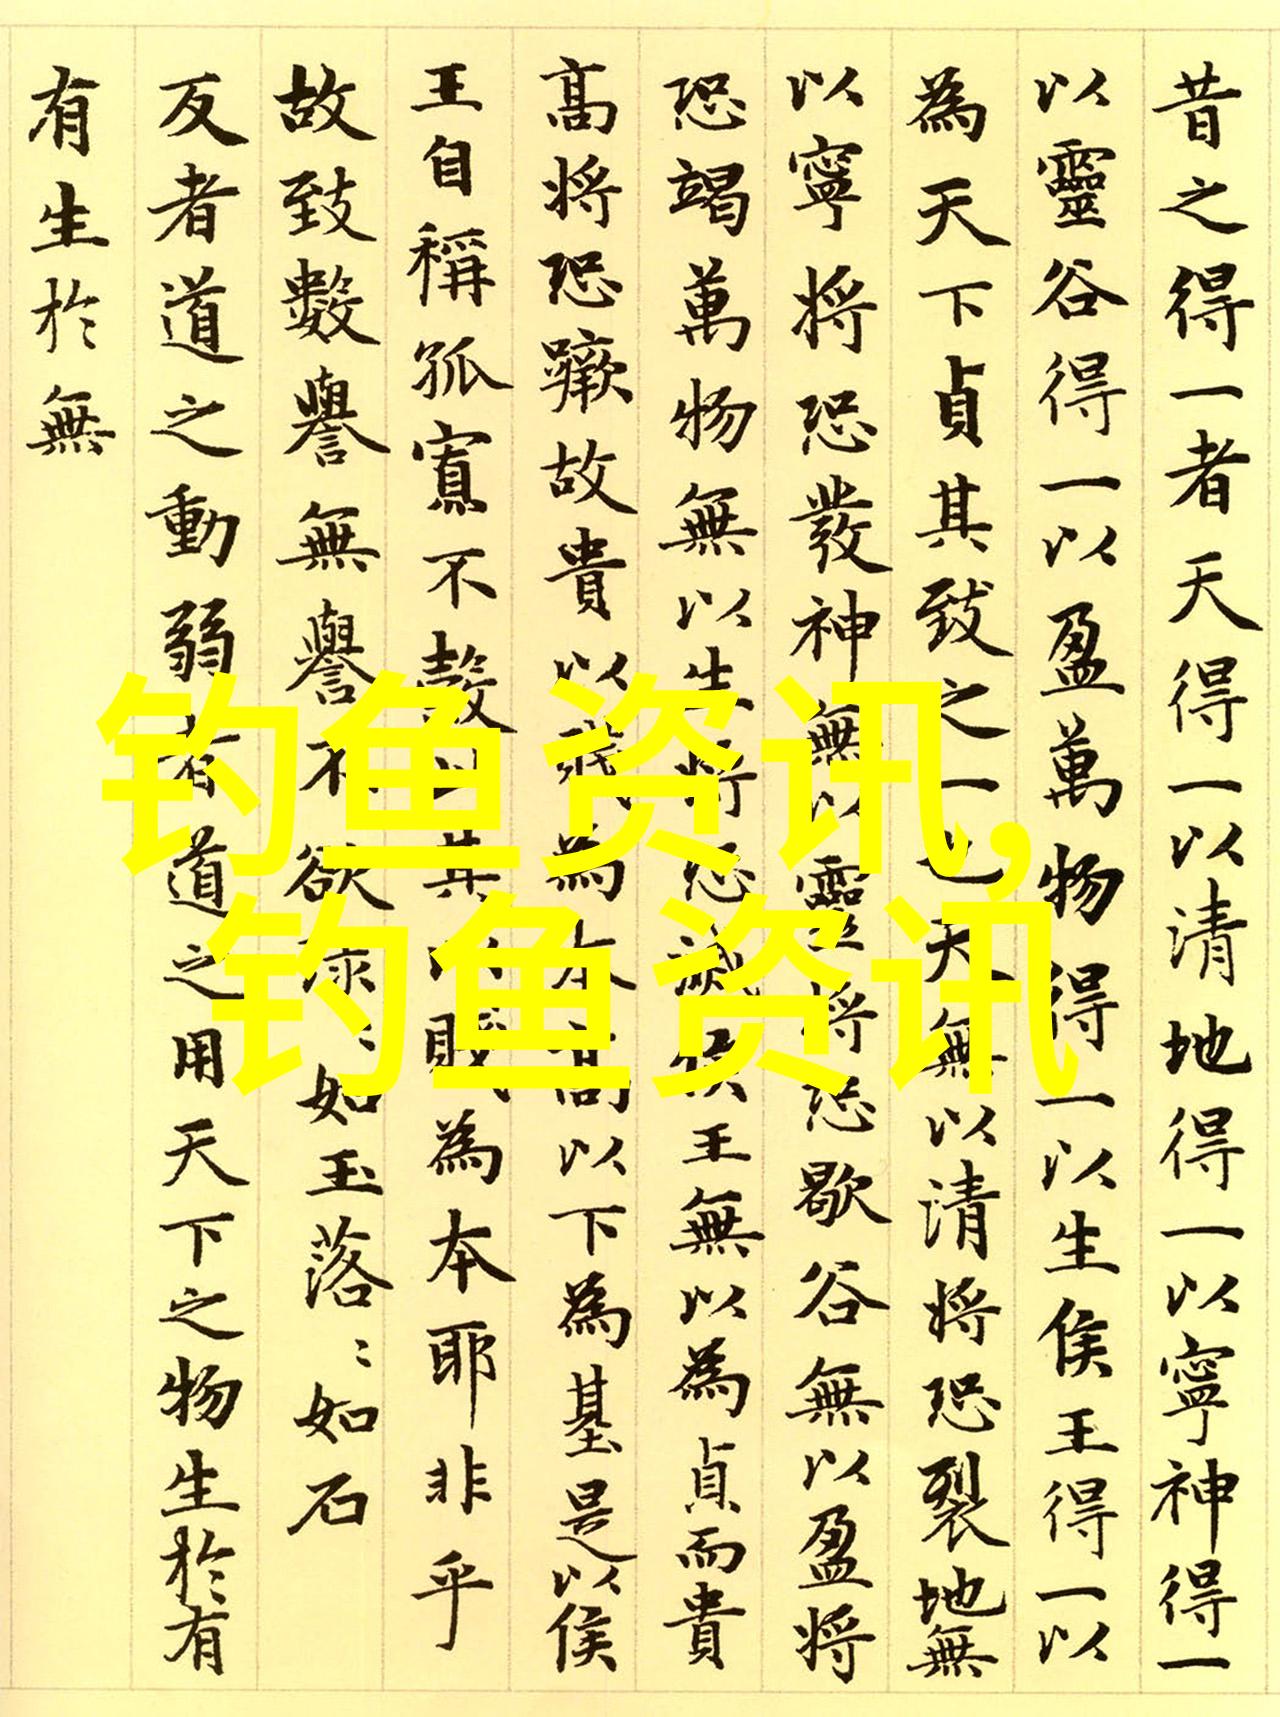 昔之得一者天得一以清地得一以寧神得一
以靈谷得一以盈萬物得一以生侯王得一以
為天下貞其致之一也天無以清将恐裂地無
以寧将恐發神無以靈将恐歇谷無以盈将
恐竭萬物無以生将恐滅侯王無以為貞而貴
高将恐蹶故貴以賤為本高以下為基是以侯
王自稱孤寡不穀其以賤為本耶非乎
故致數譽無譽不欲琭〻如玉落〻如石
反者道之動弱者道之用天下之物生於有
有生於無
钓鱼资讯,
钓鱼资讯